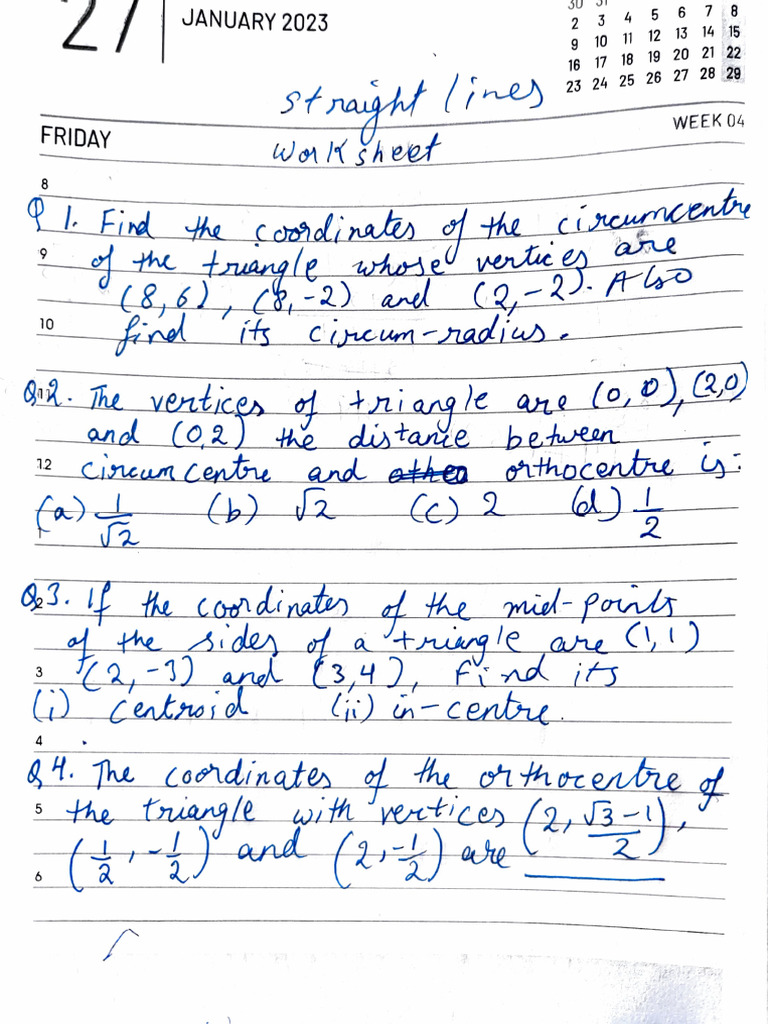 27 JANUARY 2023
30 31
2 3 4 5 6 7 8
9 10 11 12 13 14 15
16 17 18 19 20 21 22
23 24 25 26 27 28 29
straight lines
FRIDAY WEEK 04
worksheet
8
Q 1. Find the coordinates of the circumcentre
9 of the triangle whose vertices are
(8,6), (8,-2) and (2,-2). Also
10 find its circum-radius.
Q 2. The vertices of triangle are (0,0), (2,0)
and (0,2) the distance between
12 circumcentre and orthocentre is:
(a) 1/√2 (b) √2 (c) 2 (d) 1/2
Q 3. If the coordinates of the mid-points
of the sides of a triangle are (1,1)
3 (2,-3) and (3,4), Find its
(i) centroid (ii) in-centre.
4
Q 4. The coordinates of the orthocentre of
5 the triangle with vertices (2, √3-1/2),
(1/2, -1/2) and (2, -1/2) are ______
6